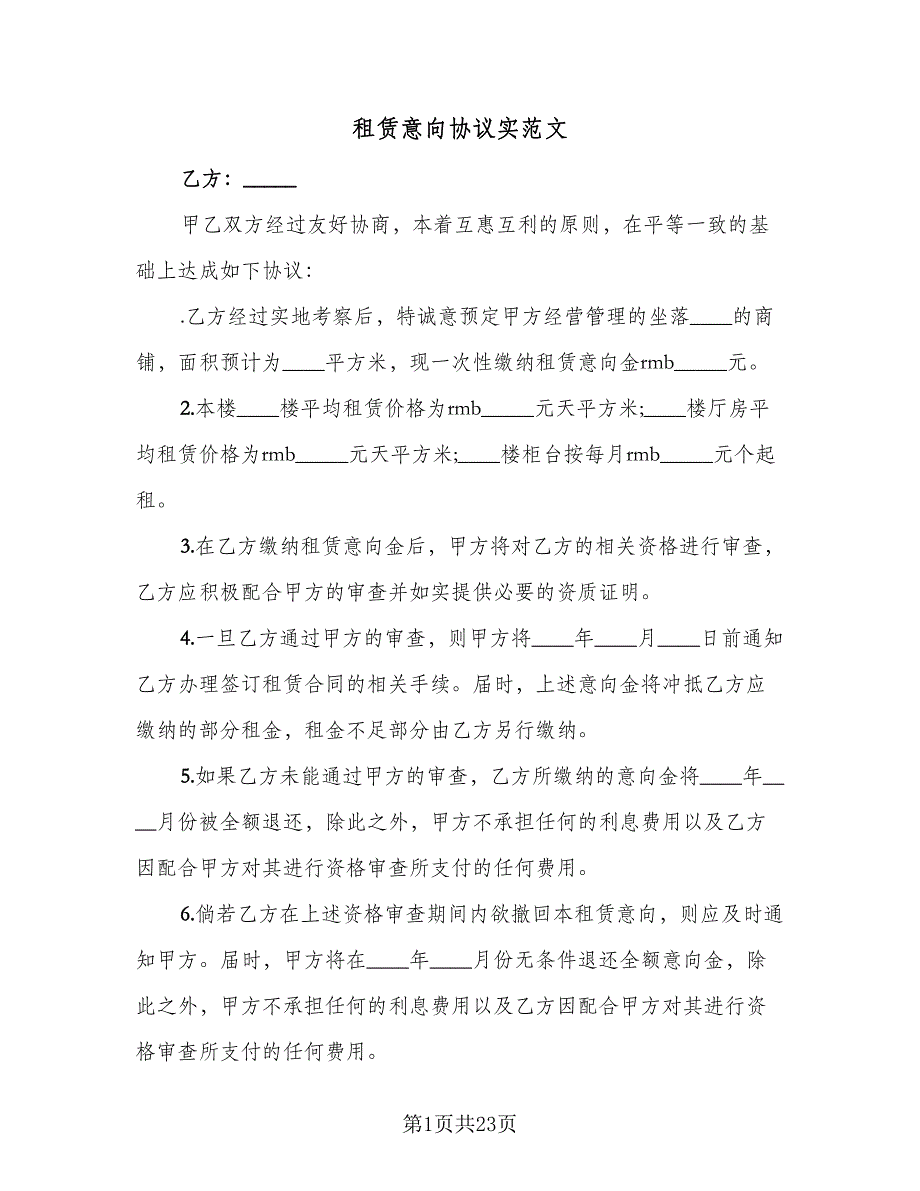 租赁意向协议实范文
乙方：_____
甲乙双方经过友好协商，本着互惠互利的原则，在平等一致的基
础上达成如下协议：
.乙方经过实地考察后，特诚意预定甲方经营管理的坐落____的商
铺，面积预计为____平方米，现一次性缴纳租赁意向金rmb_____元。
2.本楼____楼平均租赁价格为rmb_____元天平方米;____楼厅房平
均租赁价格为rmb_____元天平方米;____楼柜台按每月rmb_____元个起
租。
3.在乙方缴纳租赁意向金后，甲方将对乙方的相关资格进行审查，
乙方应积极配合甲方的审查并如实提供必要的资质证明。
4.一旦乙方通过甲方的审查，则甲方将____年____月____日前通知
乙方办理签订租赁合同的相关手续。届时，上述意向金将冲抵乙方应
缴纳的部分租金，租金不足部分由乙方另行缴纳。
5.如果乙方未能通过甲方的审查，乙方所缴纳的意向金将____年__
__月份被全额退还，除此之外，甲方不承担任何的利息费用以及乙方
因配合甲方对其进行资格审查所支付的任何费用。
6.倘若乙方在上述资格审查期间内欲撤回本租赁意向，则应及时通
知甲方。届时，甲方将在____年____月份无条件退还全额意向金，除
此之外，甲方不承担任何的利息费用以及乙方因配合甲方对其进行资
格审查所支付的任何费用。
第1页共23页